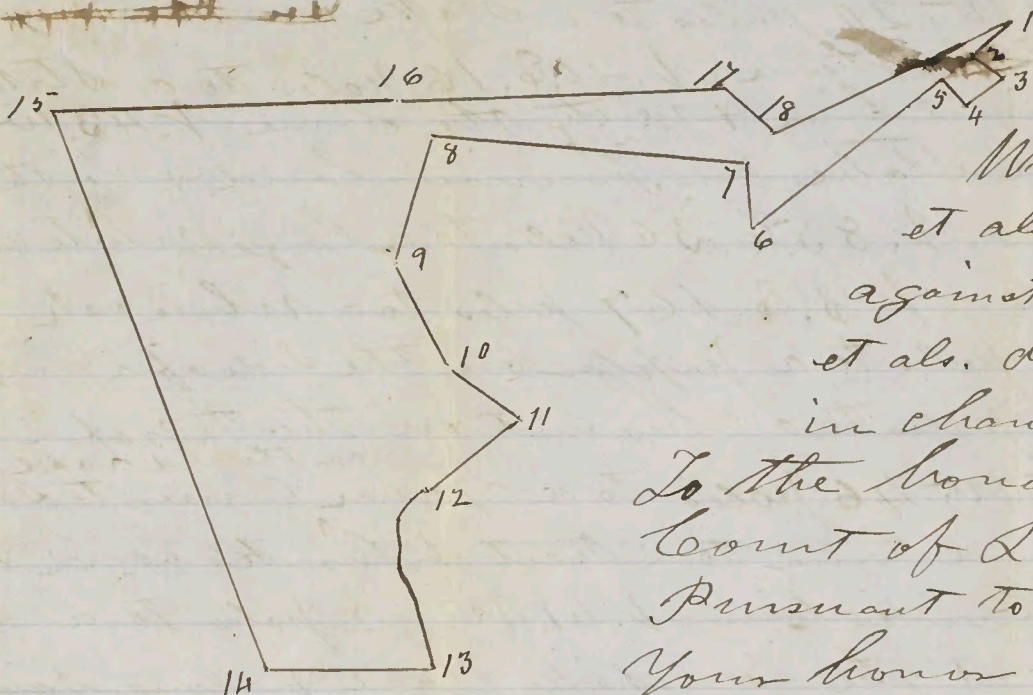 1
2
3
4
5
6
7
8
9
10
11
12
13
14
15
16
17
18
et al
against
et als. d
in chan
To the hono
Court of L
Pursuant to
Your honor